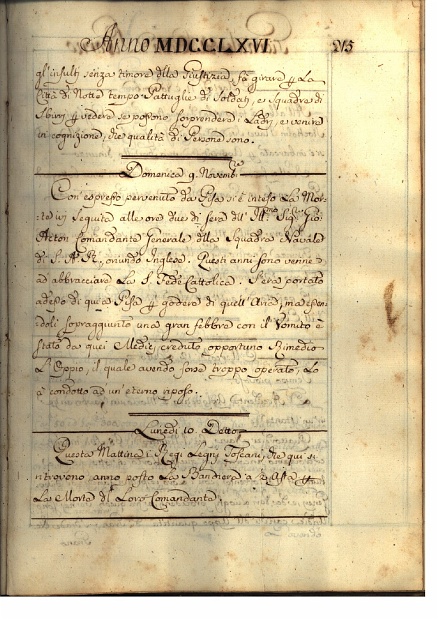 Anno MDCCLXVI. 215
gl'insulti senza timore della Giustizia, fà girare p La
Città di Notte tempo Pattuglie di Soldati, e Squadre di
Sbirri p vedere se possono sorprendere i Ladri, e venire
in cognizione, che qualità di Persone sono.
Domenica 9. Novembre
Con espresso pervenuto da Pisa si è inteso La Mor-
te ivi seguita alle ore due di sera dell' Ill.mo Sig.re Gio:
Acton Comandante Generale della Squadra Navale
di S. A. R., oriundo Inglese. Questi anni sono venne
ad abbracciare La S. Fede Cattolica. S'era portato
adesso di qua a Pisa p godere di quell'Aria, ma essen-
doli sopraggiunto una gran febbre con il Vomito è
stato da quei Medici creduto opportuno Rimedio
L'Oppio, il quale avendo forse troppo operato, Lo
à condotto ad un'eterno riposo.
Lunedì 10. Detto
Questa Mattina i Regi Legni Toscani, che qui si
ritrovono anno posto La Bandiera a
La Morte del Loro Comandante.